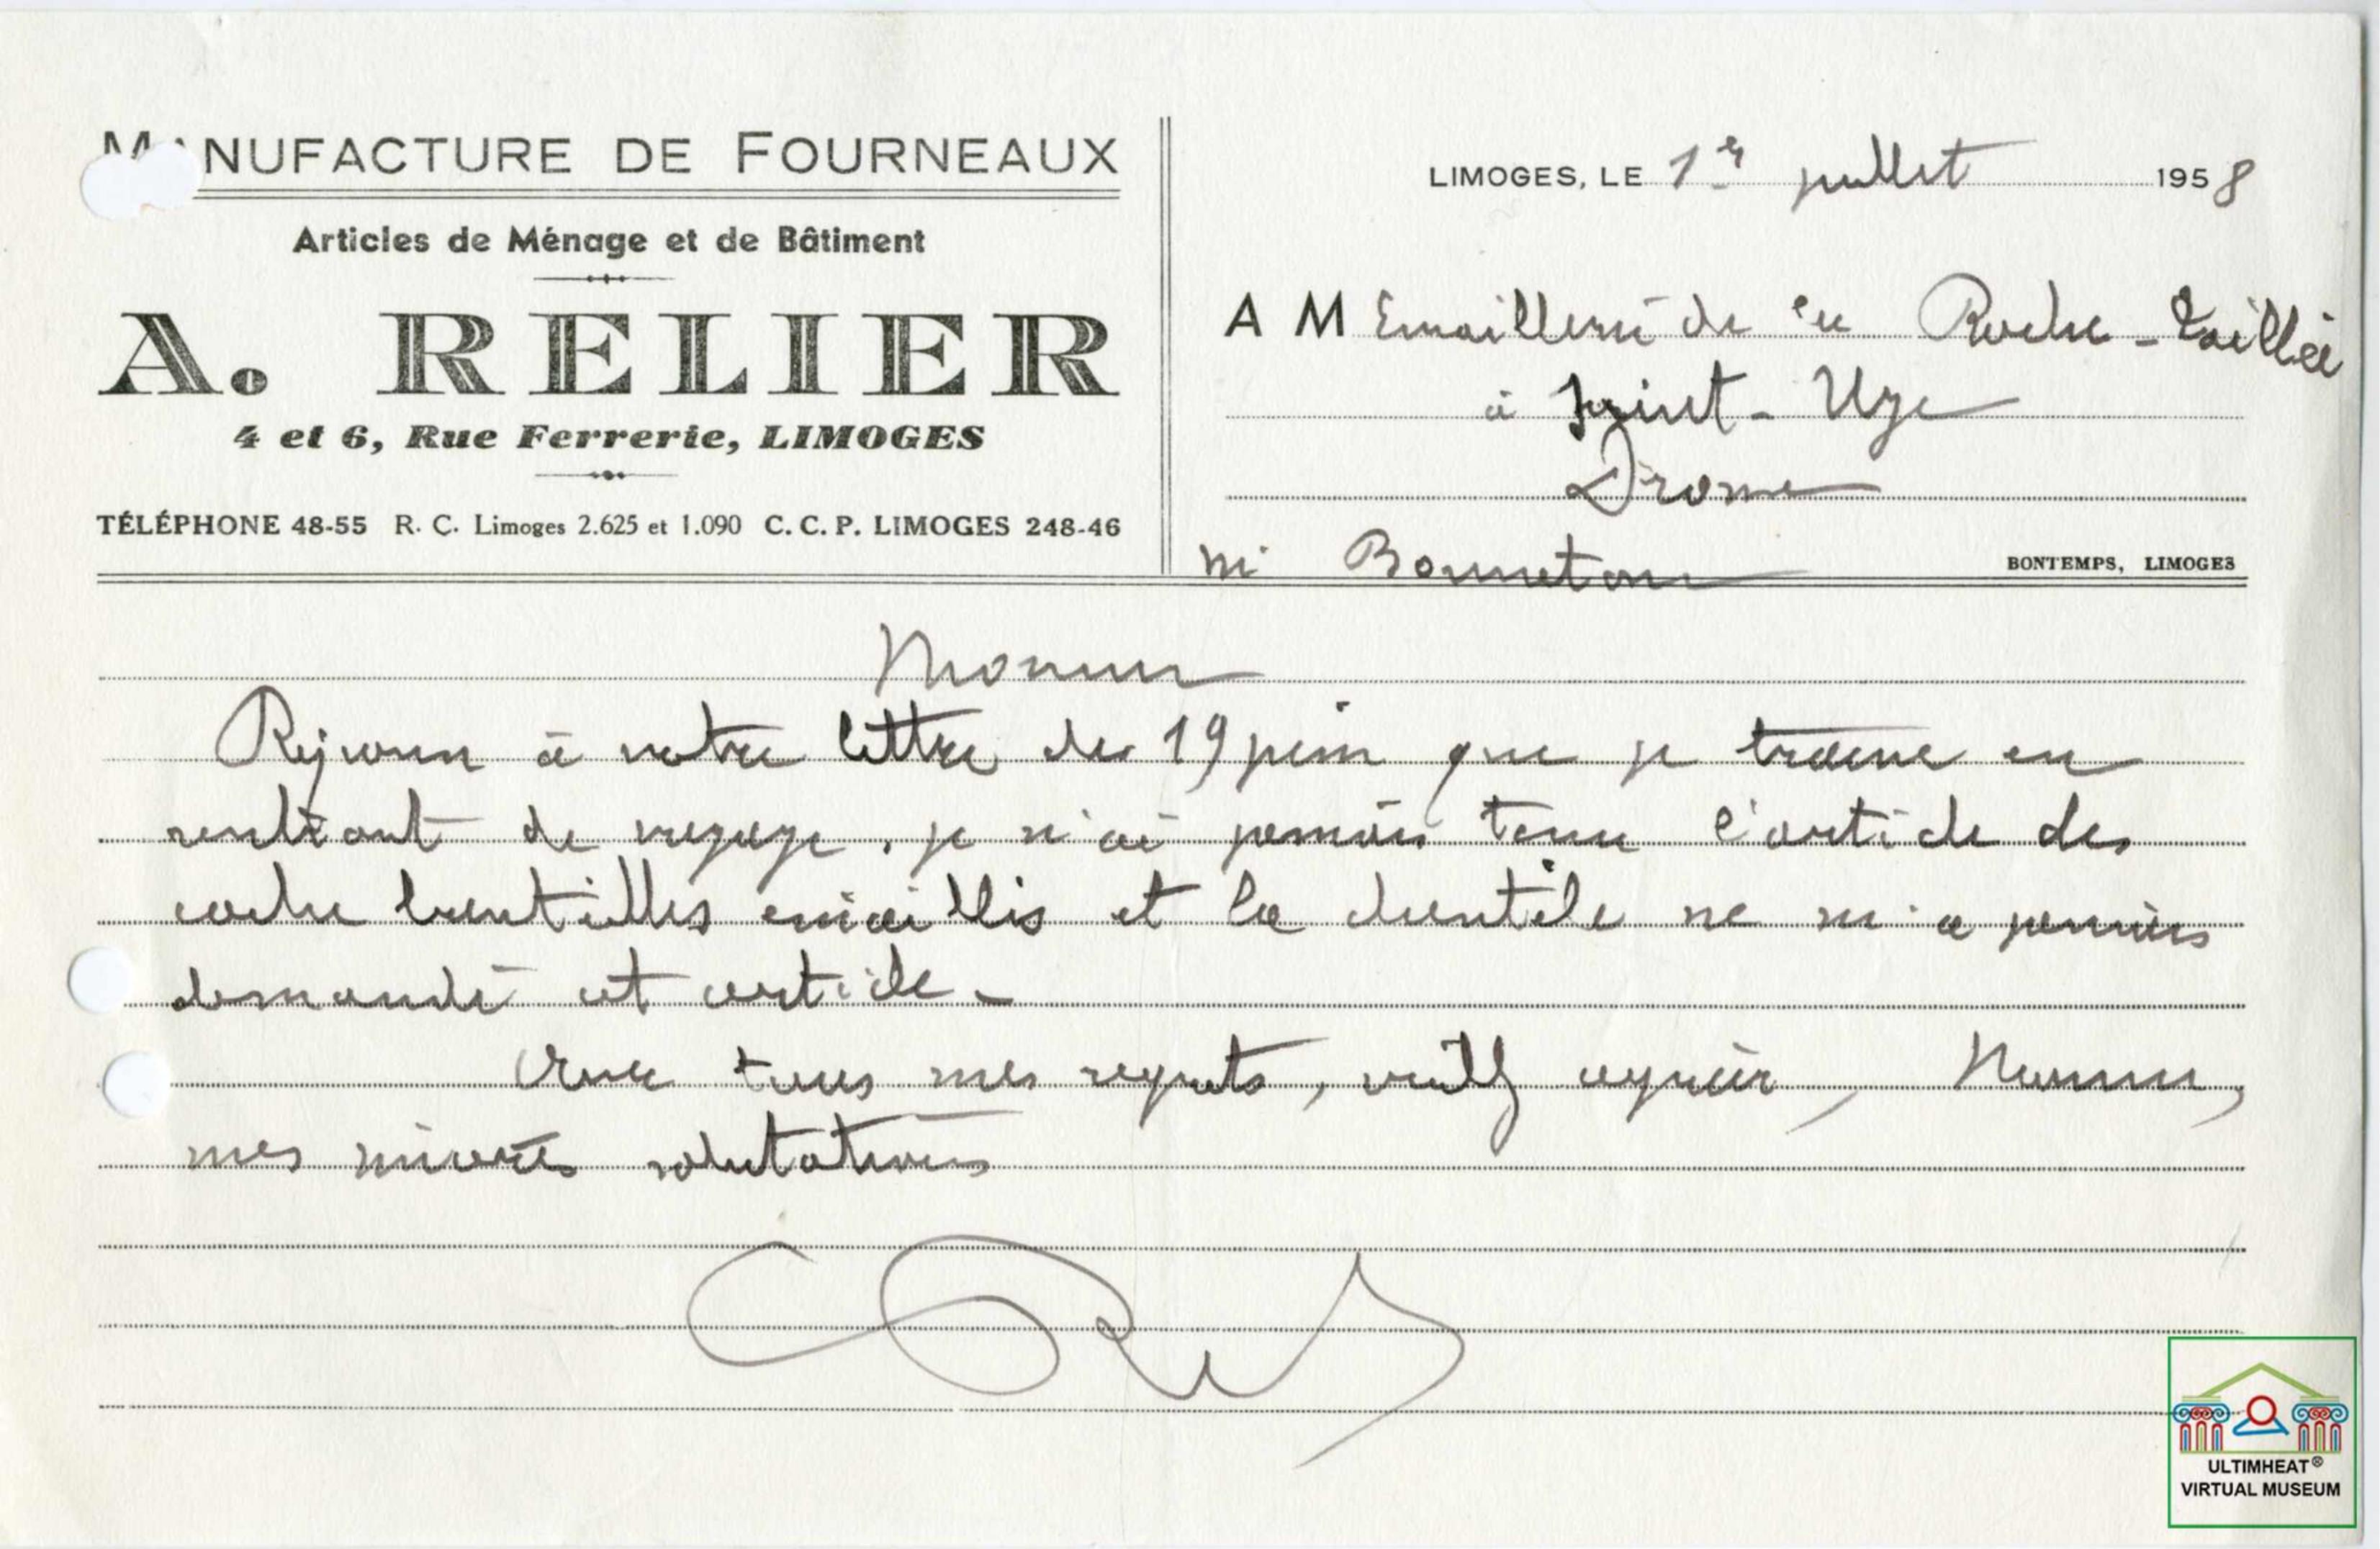 MANUFACTURE DE FOURNEAUX
Articles de Ménage et de Bâtiment
A. RELIER
4 et 6, Rue Ferrerie, LIMOGES
TÉLÉPHONE 48-55 R. C. Limoges 2.625 et 1.090 C. C. P. LIMOGES 248-46
LIMOGES, LE 1er juillet 1958
A M Emaillerie de la Roche-taillée
à Saint-Uze
Drome
Mr Bonneton
BONTEMPS, LIMOGES
Monsieur
Réponse à votre lettre du 19 juin que je trouve en
rentrant de voyage, je n'ai jamais tenu l'article des
cache lentilles émaillés et la clientèle ne m'a jamais
demandé cet article -
Avec tous mes regrets, veuillez agréer, Monsieur,
mes sincères salutations
ULTIMHEAT®
VIRTUAL MUSEUM